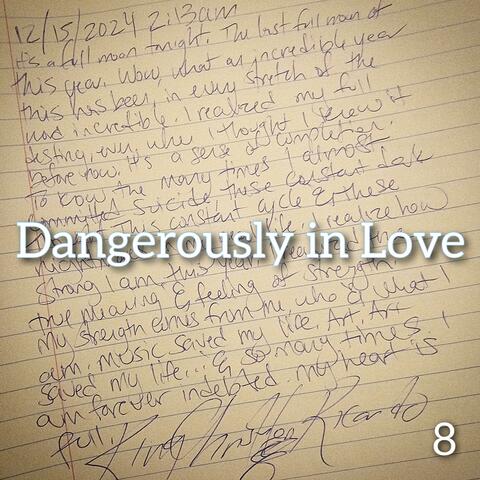 12/15/2024 2:13am
it's a full moon tonight. The last full moon of
this year. Wow, what an incredible year
this has been, in every stretch of the
word incredible. I realized my full
destiny, even when I thought I knew it
before now. it's a sense of completion.
To know the many times I almost
committed suicide these constant dark
this constant cycle & these
life. I realize how
Dangerously in Love
strong I am. this year I realized the
true meaning & feeling of strength
my strength comes from me who & what I
am. music saved my life. Art. Art
saved my life... & so many times. I
am forever indebted. my heart is
full.
8